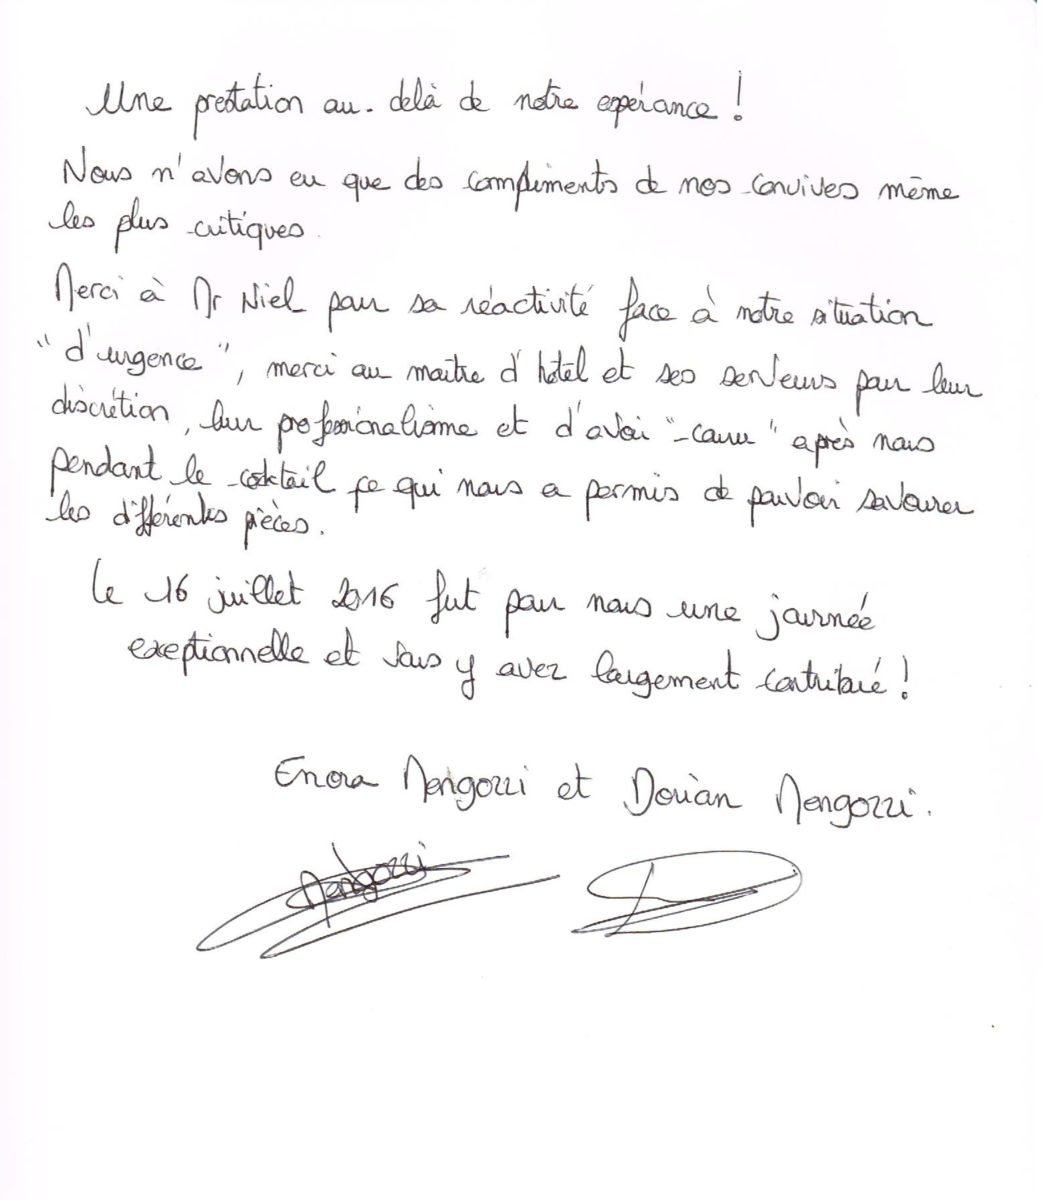 Une prestation au-delà de notre espérance !
Nous n'avons eu que des compliments de nos convives même
les plus critiques.
Merci à Mr Niel pour sa réactivité face à notre situation
"d'urgence", merci au maître d'hôtel et ses serveurs pour leur
discrétion, leur professionalisme et d'avoir "couru" après nous
pendant le cocktail ce qui nous a permis de pouvoir savourer
les différentes pièces.
Le 16 juillet 2016 fut pour nous une journée
exeptionnelle et vous y avez largement contribué !
Enora Mengozzi et Dorian Mengozzi.
Mengozzi